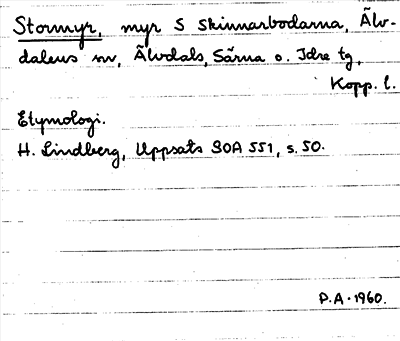 Stormyr, myr S Skinnarbodarna, Älv-
dalens sn, Älvdals, Särna o. Idre tg,
Kopp. l.
Etymologi.
H. Lindberg, Uppsats SOA 551, s. 50.
P.A. 1960.